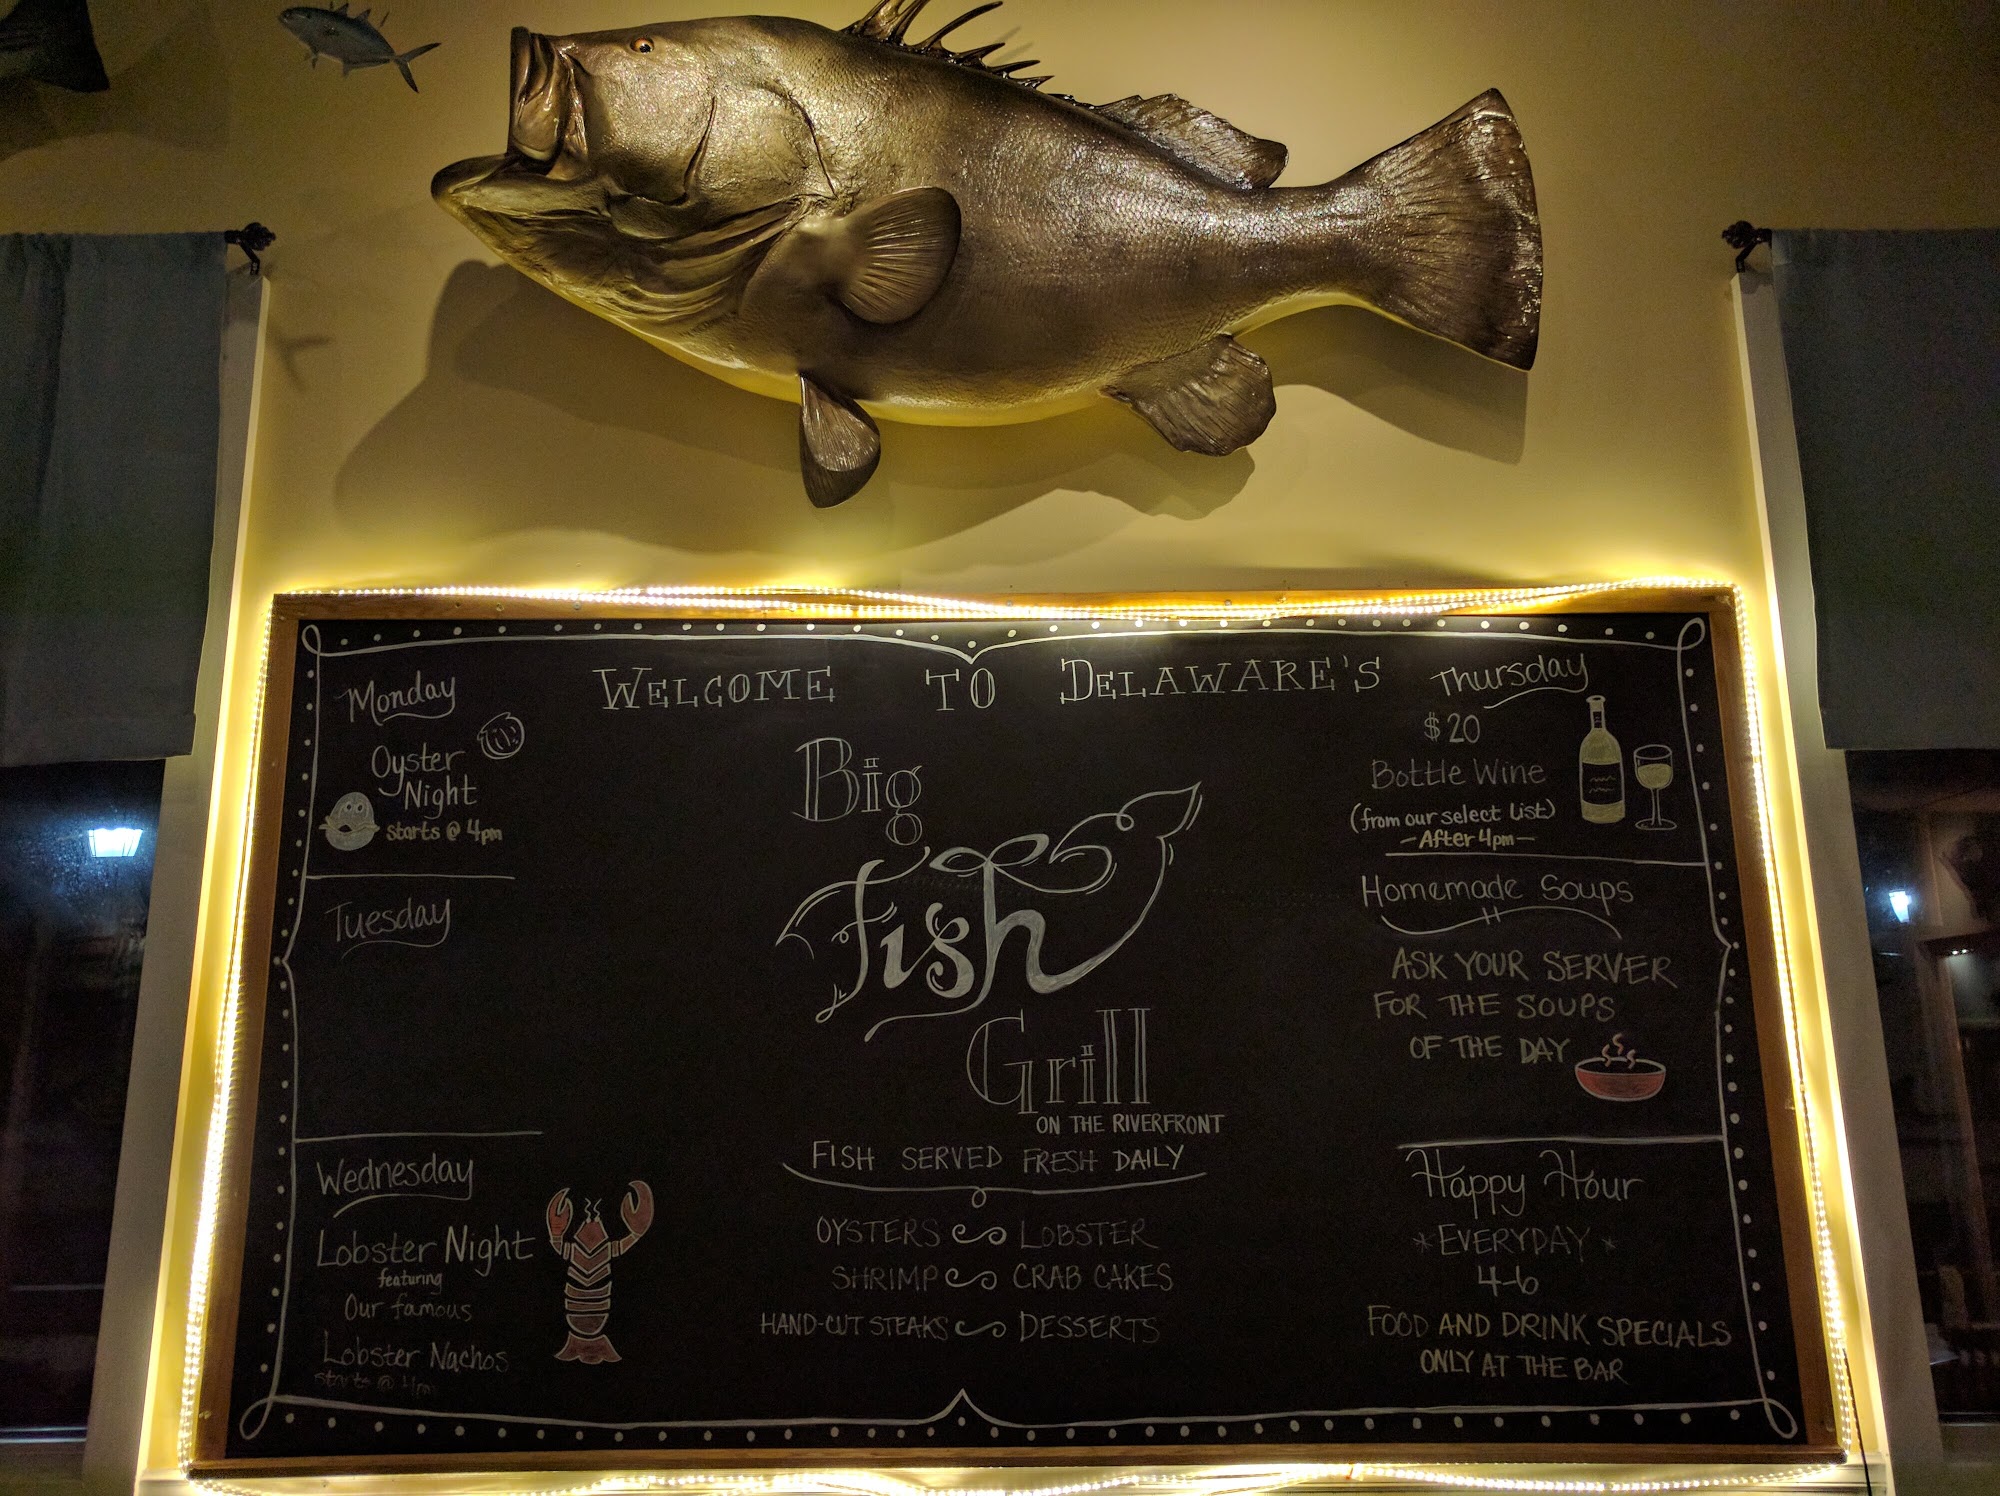 Monday
Oyster
Night
starts @ 4pm
Tuesday
Wednesday
Lobster Night
featuring
Our famous
Lobster Nachos
starts @ 4pm
WELCOME TO DELAWARE'S
Big
Fish
Grill
ON THE RIVERFRONT
FISH SERVED FRESH DAILY
OYSTERS LOBSTER
SHRIMP CRAB CAKES
HAND-CUT STEAKS DESSERTS
Thursday
$20
Bottle Wine
(from our select List)
-After 4pm-
Homemade Soups
ASK YOUR SERVER
FOR THE SOUPS
OF THE DAY
Happy Hour
*EVERYDAY*
4-6
FOOD AND DRINK SPECIALS
ONLY AT THE BAR